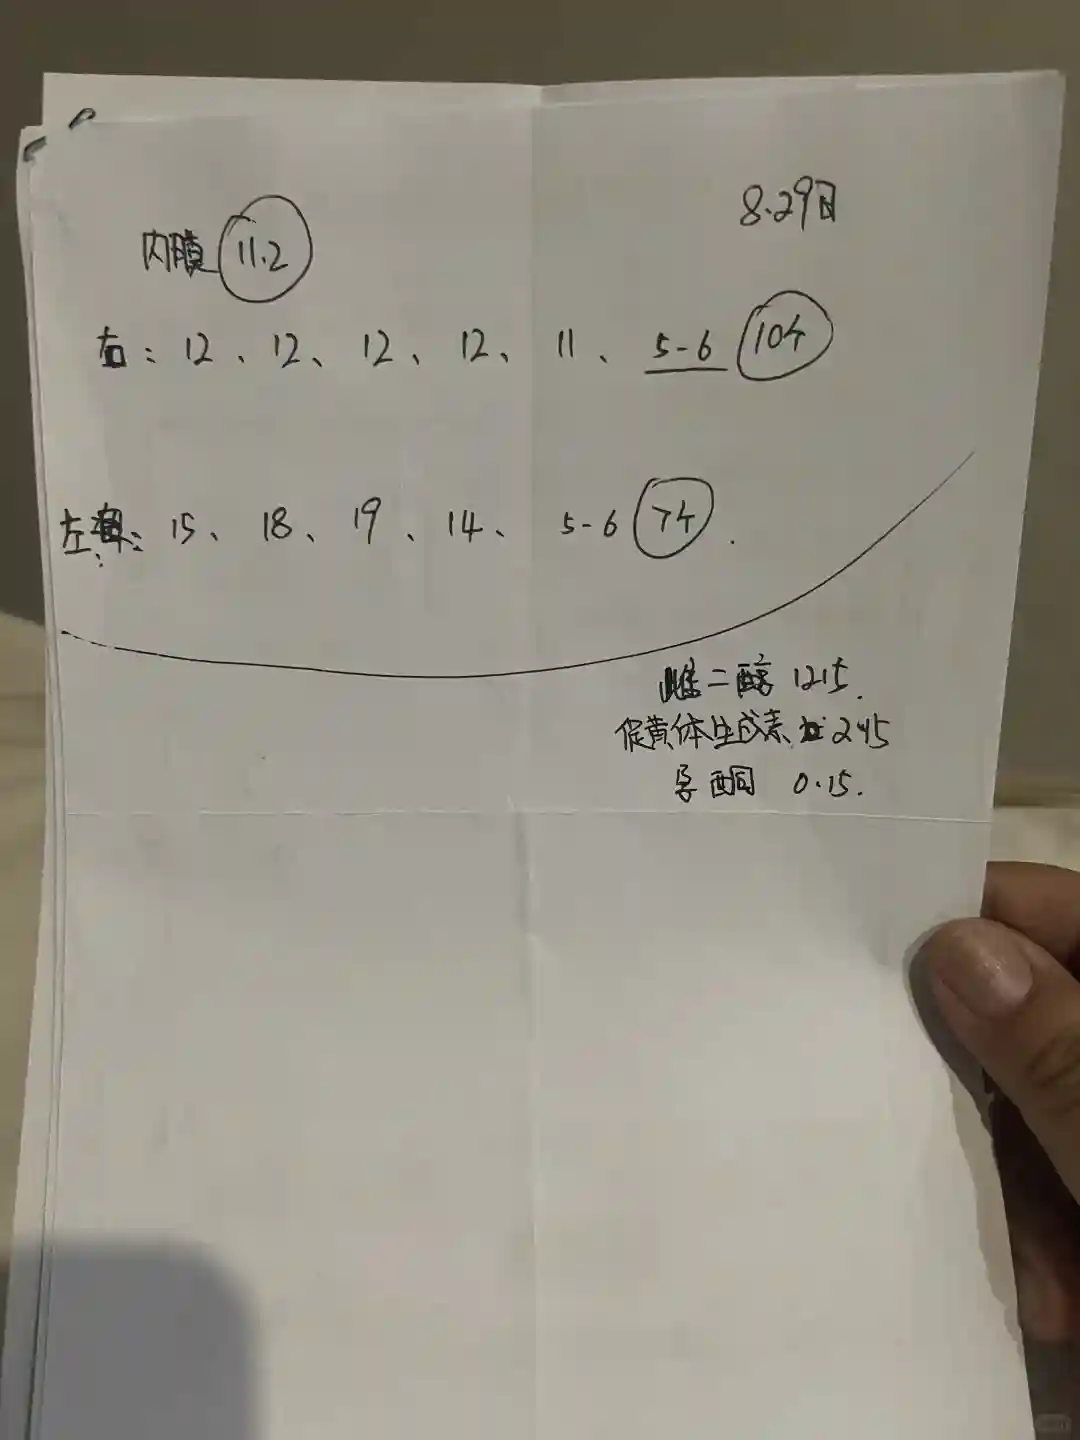 8.29日
内膜 11.2
右：12、12、12、12、11、5-6 10个
左：15、18、19、14、5-6 7个.
雌二醇 1215.
促黄体生成素 2.45
孕酮 0.15.